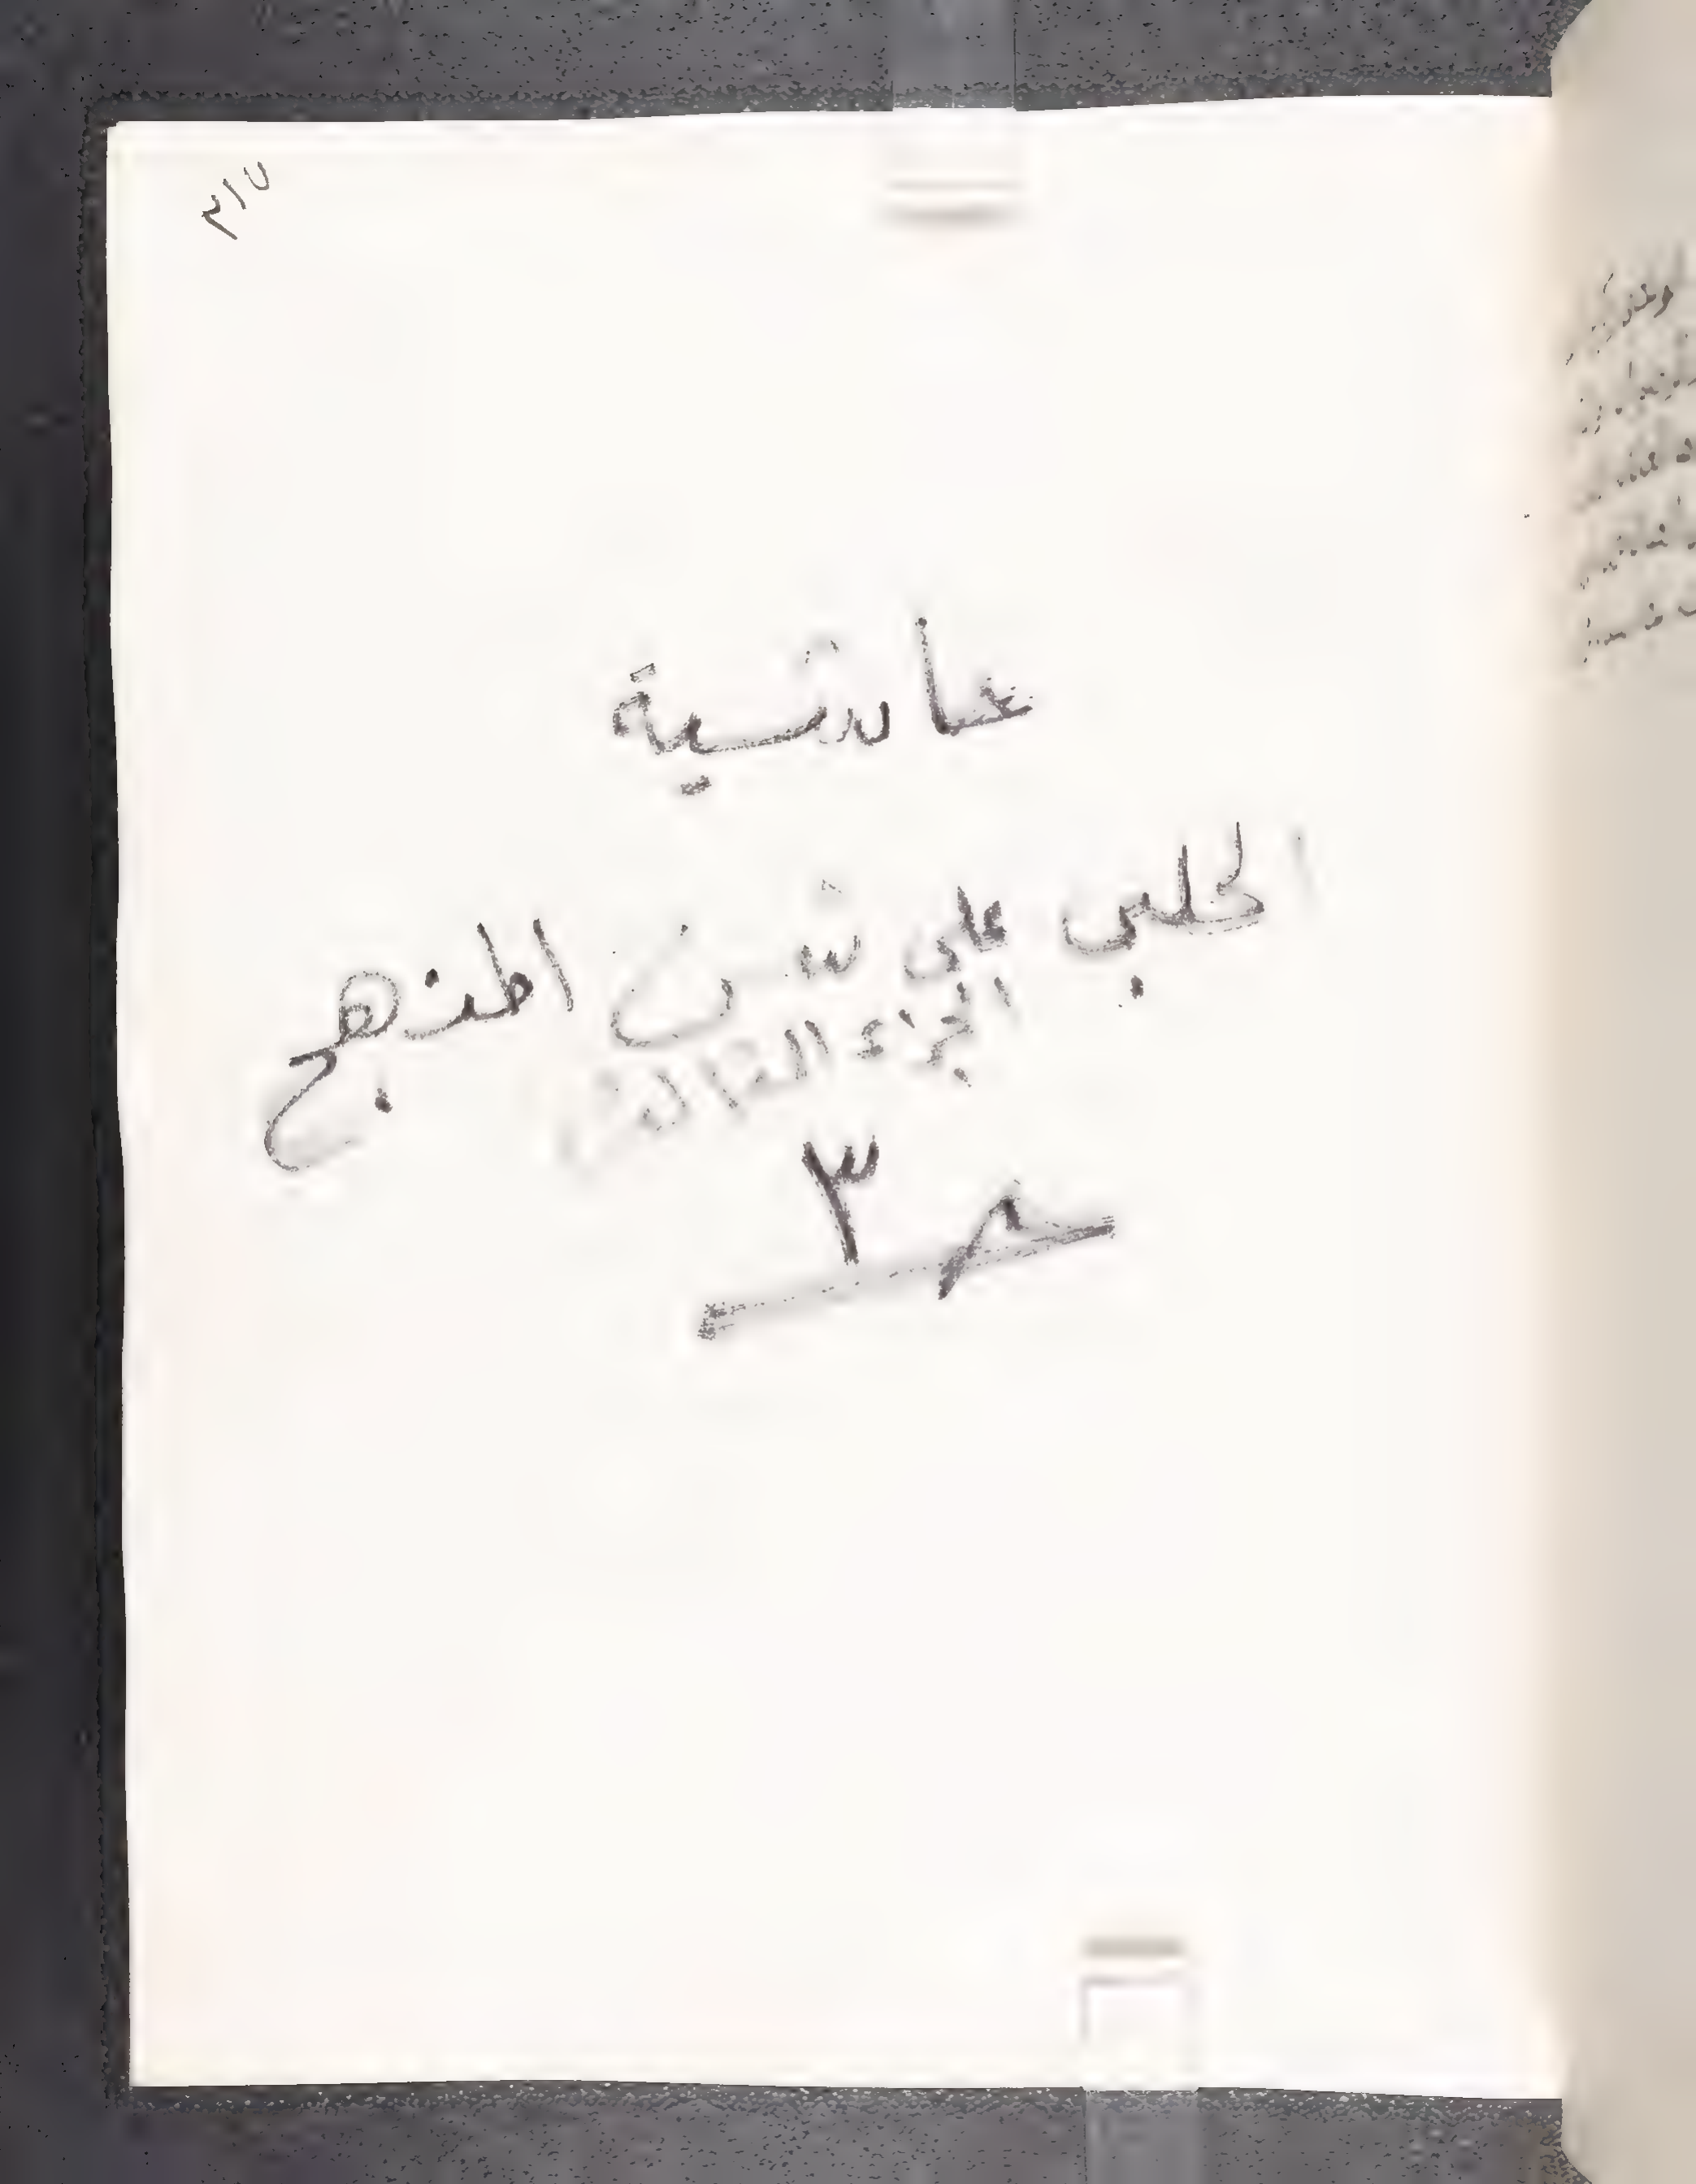 ٣١٧
حاشية
الحلبي على شرح المنهج
الجزء الثالث
ح ٣